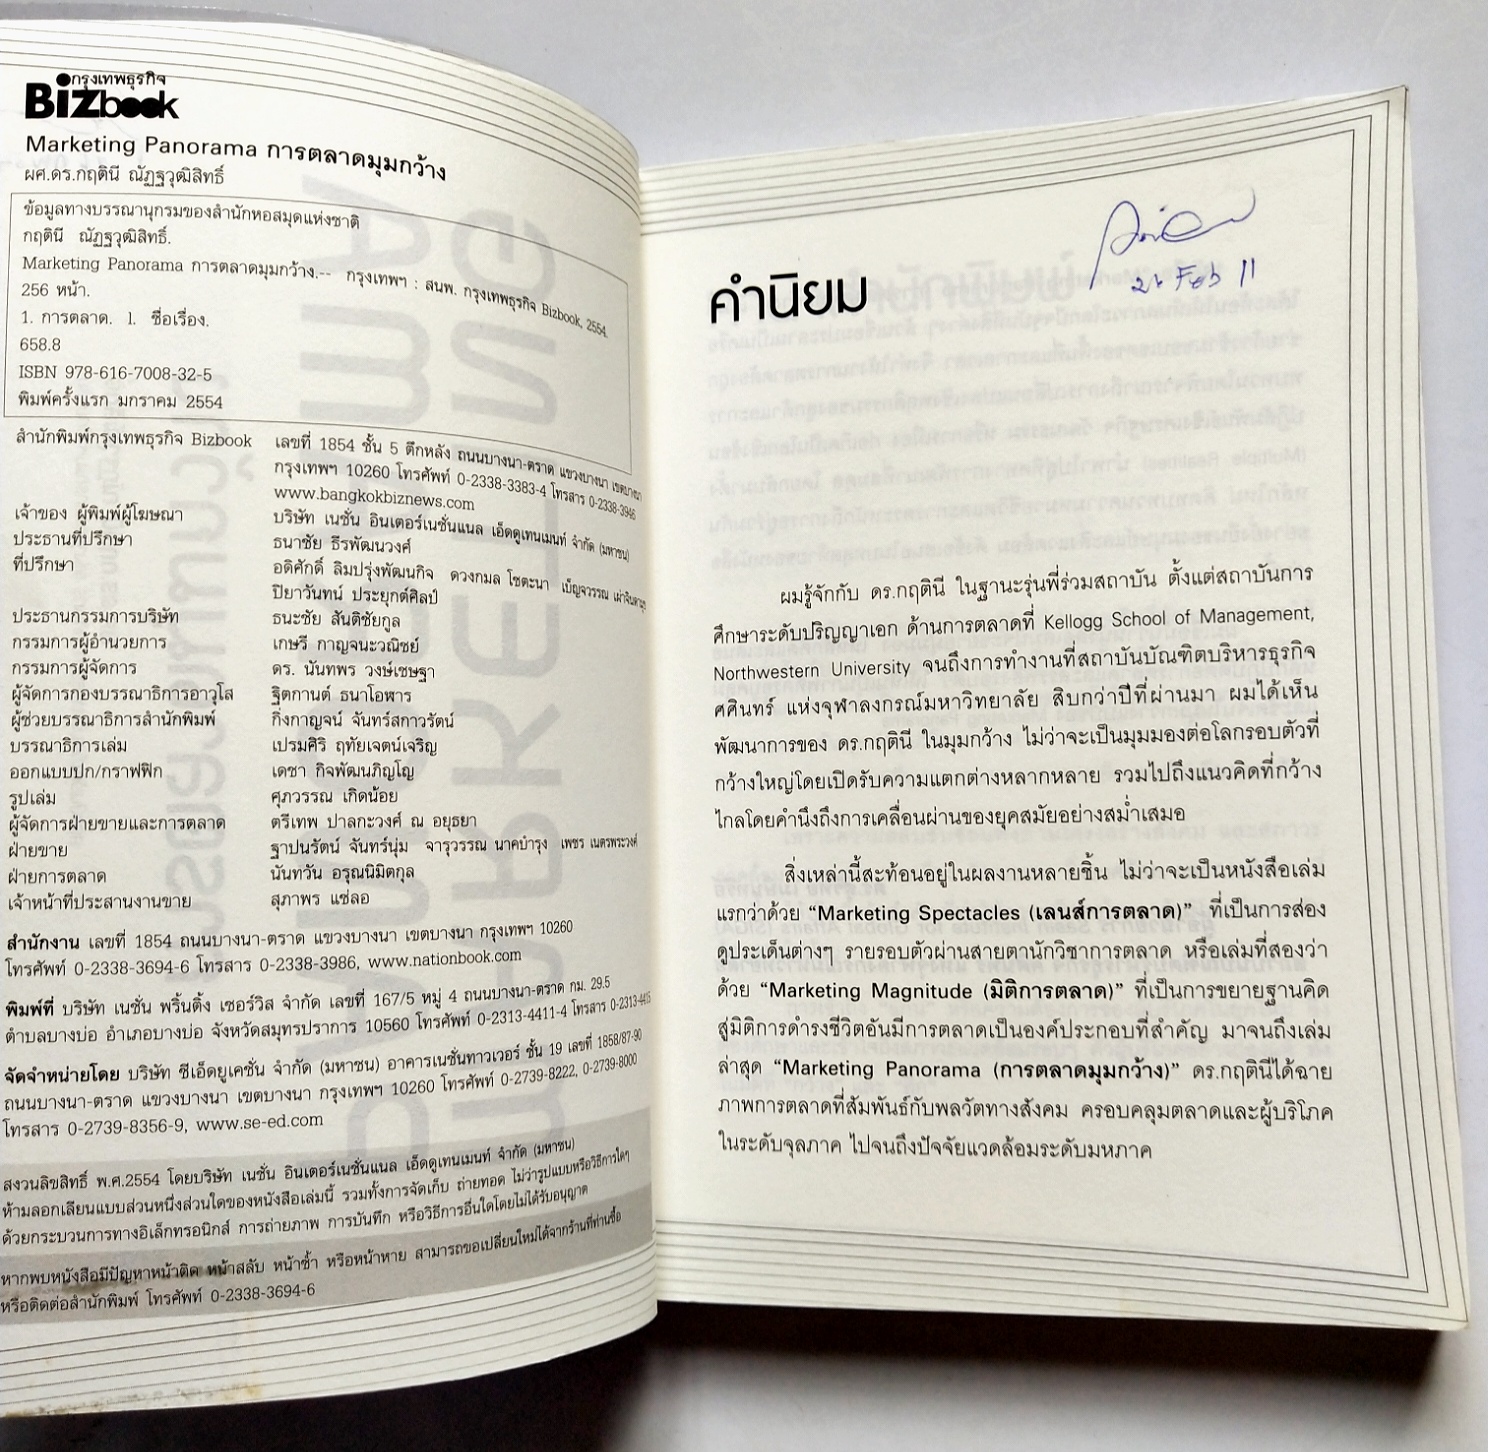 กรุงเทพธุรกิจ
Bizbook
Marketing Panorama การตลาดมุมกว้าง
ผศ.ดร.กฤตินี ณัฏฐวุฒิสิทธิ์
ข้อมูลทางบรรณานุกรมของสำนักหอสมุดแห่งชาติ
กฤตินี ณัฏฐวุฒิสิทธิ์.
Marketing Panorama การตลาดมุมกว้าง.-- กรุงเทพฯ : สนพ. กรุงเทพธุรกิจ Bizbook, 2554.
256 หน้า.
1. การตลาด. l. ชื่อเรื่อง.
658.8
ISBN 978-616-7008-32-5
พิมพ์ครั้งแรก มกราคม 2554
สำนักพิมพ์กรุงเทพธุรกิจ Bizbook เลขที่ 1854 ชั้น 5 ตึกหลัง ถนนบางนา-ตราด แขวงบางนา เขตบางนา
กรุงเทพฯ 10260 โทรศัพท์ 0-2338-3383-4 โทรสาร 0-2338-3946
www.bangkokbiznews.com
เจ้าของ ผู้พิมพ์ผู้โฆษณา บริษัท เนชั่น อินเตอร์เนชั่นแนล เอ็ดดูเทนเมนท์ จำกัด (มหาชน)
ประธานที่ปรึกษา ธนาชัย ธีรพัฒนวงศ์
ที่ปรึกษา อดิศักดิ์ ลิมปรุ่งพัฒนกิจ ดวงกมล โชตะนา เบ็ญจวรรณ
ปิยาวันทน์ ประยุกต์ศิลป์
ประธานกรรมการบริษัท ธนะชัย สันติชัยกูล
กรรมการผู้อำนวยการ เกษรี กาญจนะวณิชย์
กรรมการผู้จัดการ ดร. นันทพร วงษ์เชษฐา
ผู้จัดการกองบรรณาธิการอาวุโส ฐิตกานต์ ธนาโอฬาร
ผู้ช่วยบรรณาธิการสำนักพิมพ์ กิ่งกาญจน์ จันทร์สกาวรัตน์
บรรณาธิการเล่ม เปรมศิริ ฤทัยเจตน์เจริญ
ออกแบบปก/กราฟฟิก เดชา กิจพัฒนภิญโญ
รูปเล่ม ศุภวรรณ เกิดน้อย
ผู้จัดการฝ่ายขายและการตลาด ตรีเทพ ปาลกะวงศ์ ณ อยุธยา
ฝ่ายขาย ฐาปนรัตน์ จันทร์นุ่ม จารุวรรณ นาคบำรุง เพชร เนตรพระวงศ์
ฝ่ายการตลาด นันทวัน อรุณนิมิตกุล
เจ้าหน้าที่ประสานงานขาย สุภาพร แซ่ลอ
สำนักงาน เลขที่ 1854 ถนนบางนา-ตราด แขวงบางนา เขตบางนา กรุงเทพฯ 10260
โทรศัพท์ 0-2338-3694-6 โทรสาร 0-2338-3986, www.nationbook.com
พิมพ์ที่ บริษัท เนชั่น พริ้นติ้ง เซอร์วิส จำกัด เลขที่ 167/5 หมู่ 4 ถนนบางนา-ตราด กม. 29.5
ตำบลบางบ่อ อำเภอบางบ่อ จังหวัดสมุทรปราการ 10560 โทรศัพท์ 0-2313-4411-4 โทรสาร 0-2313-4415
จัดจำหน่ายโดย บริษัท ซีเอ็ดยูเคชั่น จำกัด (มหาชน) อาคารเนชั่นทาวเวอร์ ชั้น 19 เลขที่ 1858/87-90
ถนนบางนา-ตราด แขวงบางนา เขตบางนา กรุงเทพฯ 10260 โทรศัพท์ 0-2739-8222, 0-2739-8000
โทรสาร 0-2739-8356-9, www.se-ed.com
สงวนลิขสิทธิ์ พ.ศ.2554 โดยบริษัท เนชั่น อินเตอร์เนชั่นแนล เอ็ดดูเทนเมนท์ จำกัด (มหาชน)
ห้ามลอกเลียนแบบส่วนหนึ่งส่วนใดของหนังสือเล่มนี้ รวมทั้งการจัดเก็บ ถ่ายทอด ไม่ว่ารูปแบบหรือวิธีการใดๆ
ด้วยกระบวนการทางอิเล็กทรอนิกส์ การถ่ายภาพ การบันทึก หรือวิธีการอื่นใดโดยไม่ได้รับอนุญาต
หากพบหนังสือมีปัญหาหน้าติด หน้าสลับ หน้าซ้ำ หรือหน้าหาย สามารถขอเปลี่ยนใหม่ได้จากร้านที่ท่านซื้อ
หรือติดต่อสำนักพิมพ์ โทรศัพท์ 0-2338-3694-6
Feb 11
คำนิยม
ผมรู้จักกับ ดร.กฤตินี ในฐานะรุ่นพี่ร่วมสถาบัน ตั้งแต่สถาบันการ
ศึกษาระดับปริญญาเอก ด้านการตลาดที่ Kellogg School of Management,
Northwestern University จนถึงการทำงานที่สถาบันบัณฑิตบริหารธุรกิจ
ศศินทร์ แห่งจุฬาลงกรณ์มหาวิทยาลัย สิบกว่าปีที่ผ่านมา ผมได้เห็น
พัฒนาการของ ดร.กฤตินี ในมุมกว้าง ไม่ว่าจะเป็นมุมมองต่อโลกรอบตัวที่
กว้างใหญ่โดยเปิดรับความแตกต่างหลากหลาย รวมไปถึงแนวคิดที่กว้าง
ไกลโดยคำนึงถึงการเคลื่อนผ่านของยุคสมัยอย่างสม่ำเสมอ
สิ่งเหล่านี้สะท้อนอยู่ในผลงานหลายชิ้น ไม่ว่าจะเป็นหนังสือเล่ม
แรกว่าด้วย “Marketing Spectacles (เลนส์การตลาด)” ที่เป็นการส่อง
ดูประเด็นต่างๆ รายรอบตัวผ่านสายตานักวิชาการตลาด หรือเล่มที่สองว่า
ด้วย “Marketing Magnitude (มิติการตลาด)” ที่เป็นการขยายฐานคิด
สู่มิติการดำรงชีวิตอันมีการตลาดเป็นองค์ประกอบที่สำคัญ มาจนถึงเล่ม
ล่าสุด “Marketing Panorama (การตลาดมุมกว้าง)” ดร.กฤตินีได้ฉาย
ภาพการตลาดที่สัมพันธ์กับพลวัตทางสังคม ครอบคลุมตลาดและผู้บริโภค
ในระดับจุลภาค ไปจนถึงปัจจัยแวดล้อมระดับมหภาค